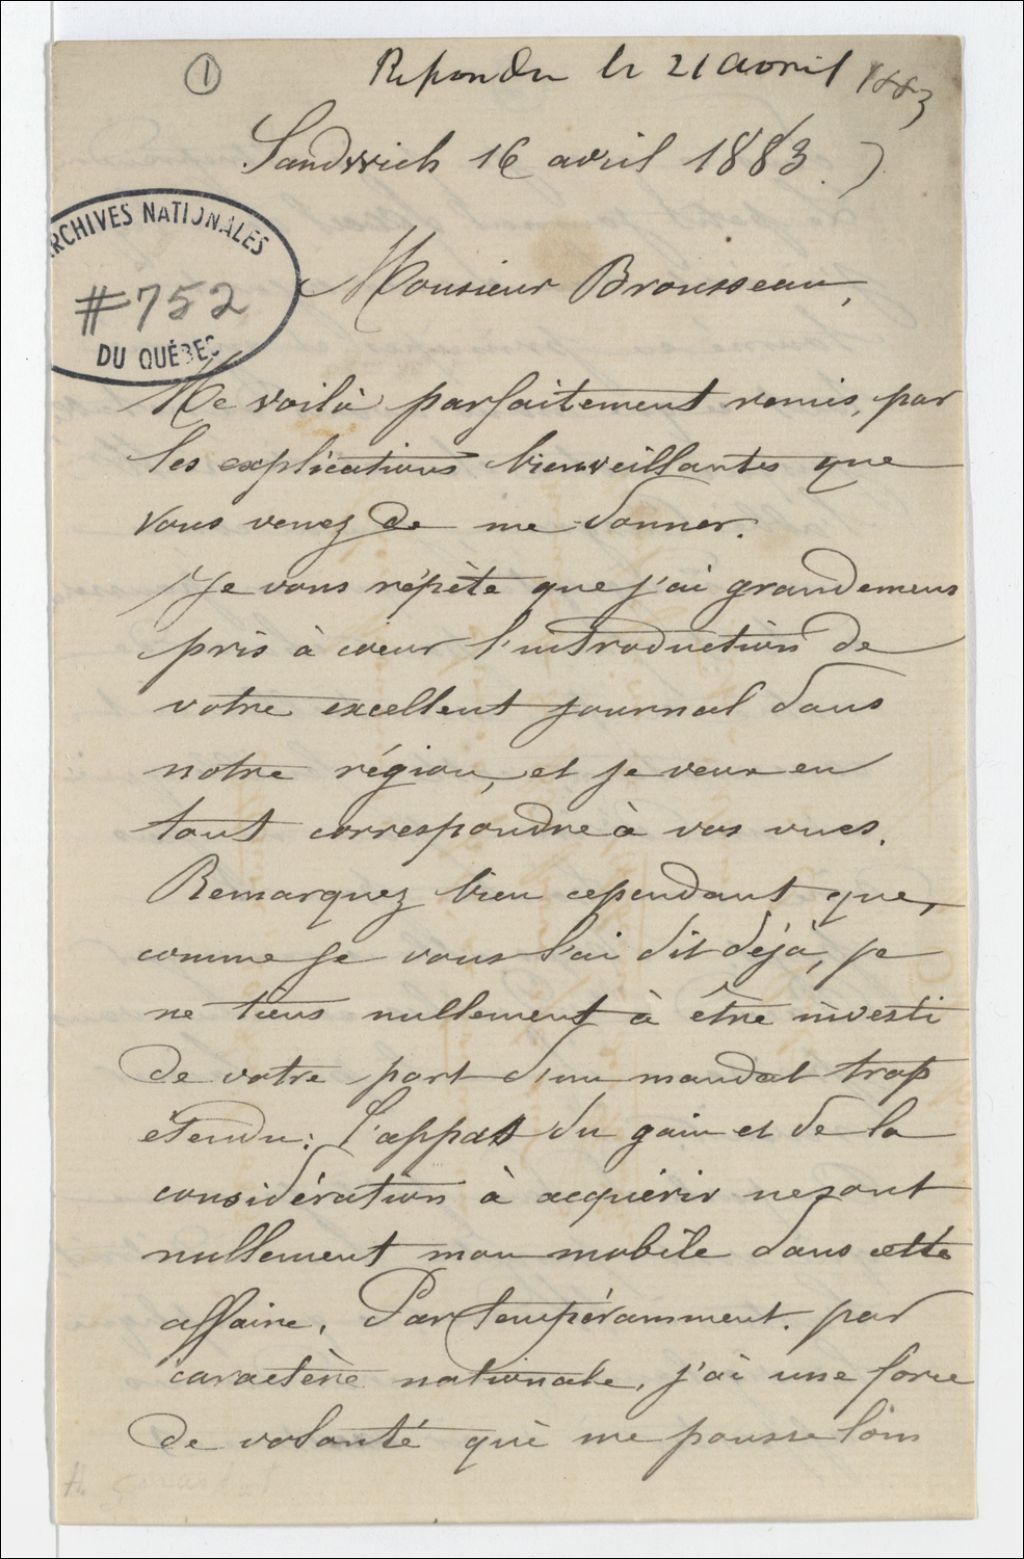 ①
Repondu le 21 avril 1883
Sandwich 16 avril 1883.
ARCHIVES NATIONALES
#752
DU QUÉBEC
Monsieur Brousseau,
Me voilà parfaitement remis, par
les explications bienveillantes que
vous venez de me donner.
Je vous répète que j'ai grandemens
pris à coeur l'introduction de
votre excellent journal dans
notre région, et je veux en
tout correspondre à vos vues.
Remarquez bien cependant que,
comme je vous l'ai dit déjà, je
ne tiens nullement à être investi
de votre part d'un mandat trop
étendu: l'appat du gain et de la
considération à acquérir ne sont
nullement mon mobile dans cette
affaire. Par tempéramment. par
caractère nationale, j'ai une force
de volonté qui me pousse loin